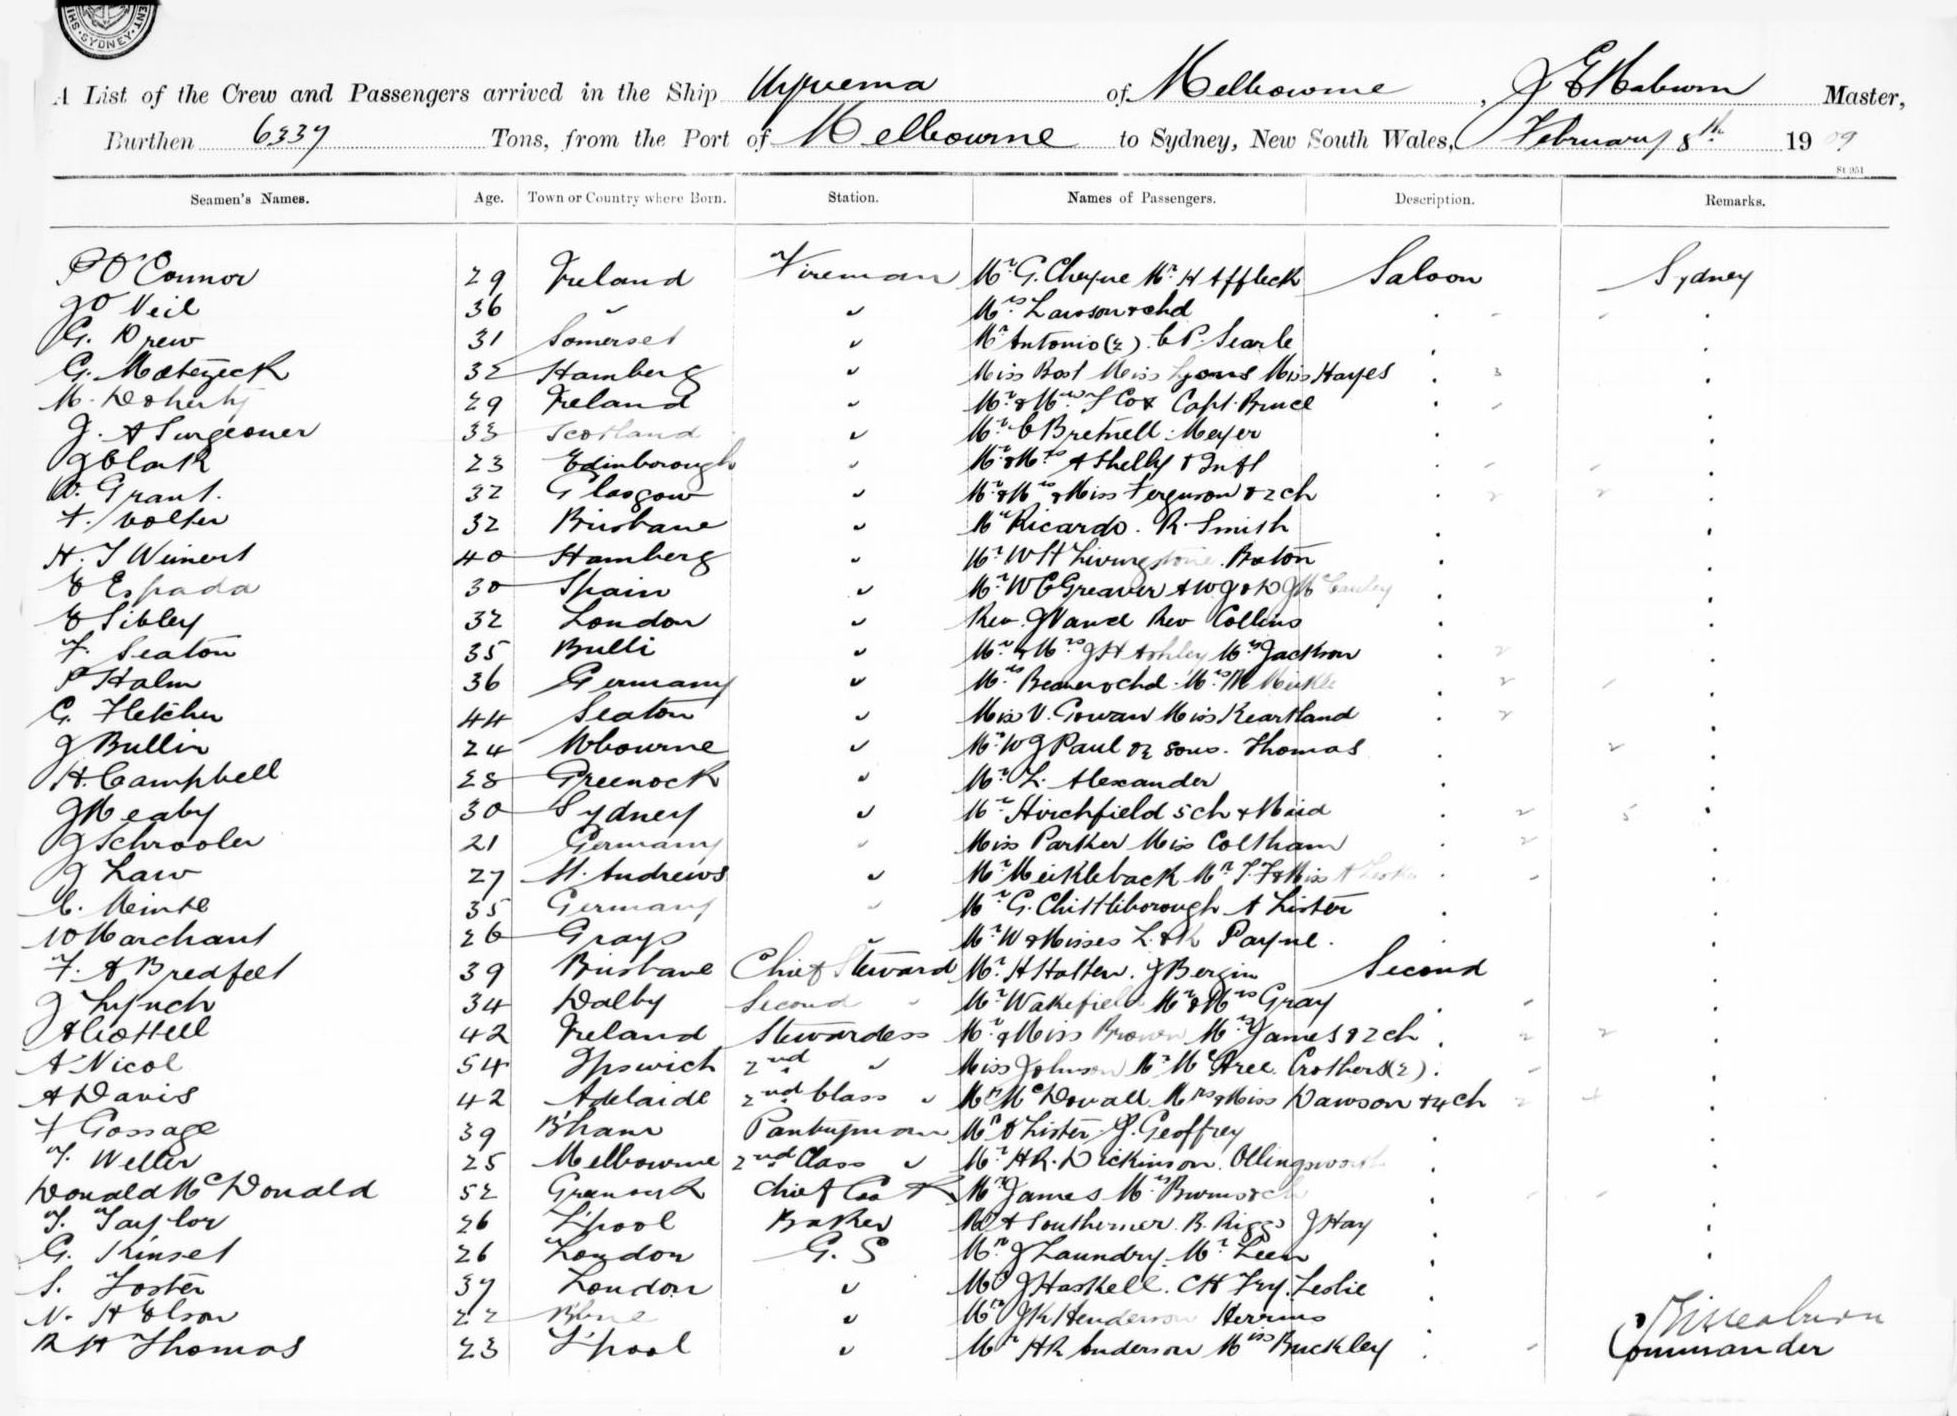 SYDNEY
A List of the Crew and Passengers arrived in the Ship Wyreema of Melbourne, Master,
Burthen 6337 Tons, from the Port of Melbourne to Sydney, New South Wales, February 8th 1909
St 951
Seamen's Names. Age. Town or Country where Born. Station. Names of Passengers. Description. Remarks.
P O'Connor 29 Ireland Fireman Mr G. Cheyne Mr H Affleck Saloon Sydney
J O'Neil 36 " " Mrs Lawson & chd
G. Drew 31 Somerset " Mr Antonio (2). C P. Searle
G. 32 Hamberg " Miss Bost Miss Lyons Miss Hayes
M. Doherty 29 Ireland " Mr & Mrs T Cox Capt. Bruce
J. A Surgeoner 33 Scotland " Mr C Bretnell. Meyer
J Clark 23 Edinborough " Mr & Mrs A Shelly & Inft
W. Grant. 32 Glasgow " Mr & Mrs & Miss Ferguson & 2 ch
F. Volter 32 Brisbane " Mr Ricardo. R. Smith
H. J Weinert 40 Hamberg " Mr W H Livingstone. Boxton
E Espada 30 Spain " Mr W C Greaver A W J & D J
E Sibley 32 London " Rev. J Vand Rev Collins
F. Seaton 35 Bulli " Mr & Mrs J H Ashley Mrs Jackson
P Halm 36 Germany " Mrs Beaver & chd. Mrs M Meikle
C. Fletcher 44 Seaton " Miss V. Gowan Miss Keartland
J Bullin 24 Mbourne " Mr W J Paul & 2 sons. Thomas
H. Campbell 28 Greenock " Mr L. Alexander
J Meaby 30 Sydney " Mr Hirchfield 5 ch & Maid
J Schrooler 21 Germany " Miss Parker Miss Coltham
J Law 27 St. Andrews " Mr Meikleback Mr T. F & Miss A
C. Meinte 35 Germany " Mr G. Chittliborough A Lister
W Marchant 26 Grays " Mr W & Misses L. & R Payne.
F. A Bredfelt 39 Brisbane Chief Steward Mr H Hatten. J Bergin Second
J Lynch 34 Dalby Second " Mr Wakefield Mr & Mrs Gray
42 Ireland Stewardess Mr & Miss Brown Mrs James & 2 ch
A Nicol 54 Ipswich 2nd " Miss Johnson Mr McCree. Crothers (2).
A Davis 42 Adelaide 2nd Class " Mr McDowall Mrs & Miss Dawson & 4 ch
F Gossage 39 B'ham Pantryman Mr A Lister. J. Geoffrey
F. Weller 25 Melbourne 2nd Class " Mr H R. Dickinson. Ollingsworth
Donald McDonald 52 Greenock Chief Cook Mr James Mrs Burns & ch
T. Taylor 26 L'pool Baker Mr A Southerner. B. Riggs J Hay
G. Kinset 26 London G. S Mr J Laundry. Mr Leen
S. Foster 37 London " Mr J Haskell. C H Fry. Leslie
N. H Olson 22 " Mr J K Henderson Herrins
R H Thomas 23 L'pool " Mr H R Anderson Miss Buckley
Commander